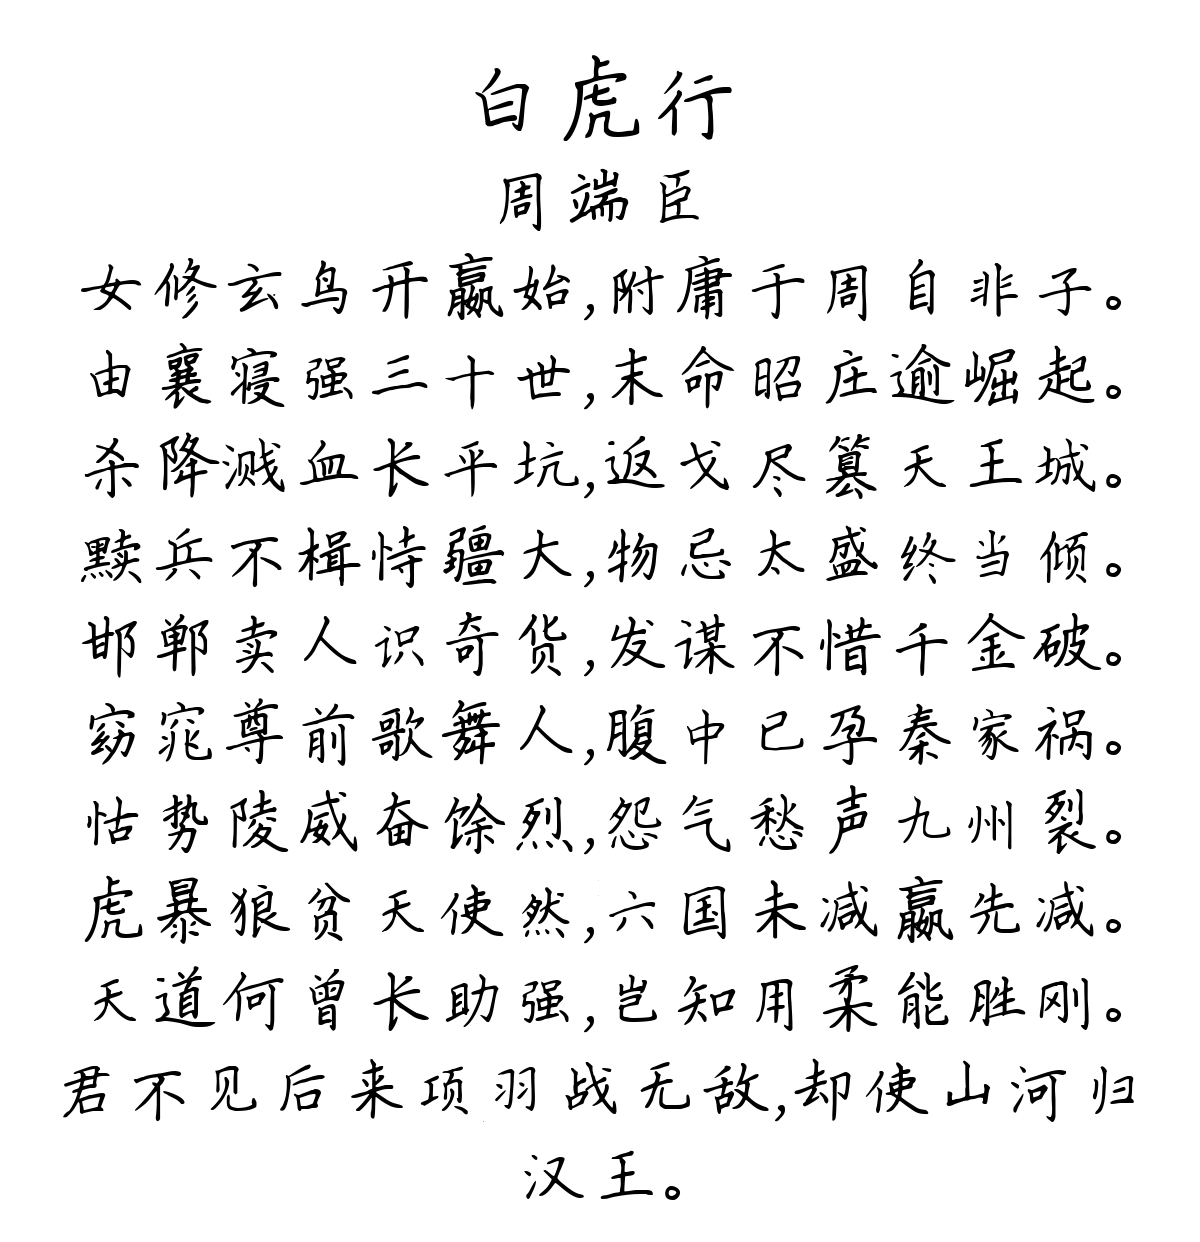 白虎行
周端臣
女修玄鸟开嬴始,附庸于周自非子。
由襄寝强三十世,末命昭庄逾崛起。
杀降溅血长平坑,返戈尽篡天王城。
黩兵不楫恃疆大,物忌太盛终当倾。
邯郸卖人识奇货,发谋不惜千金破。
窈窕尊前歌舞人,腹中已孕秦家祸。
怙势陵威奋馀烈,怨气愁声九州裂。
虎暴狼贫天使然,六国未减嬴先减。
天道何曾长助强,岂知用柔能胜刚。
君不见后来项羽战无敌,却使山河归
汉王。